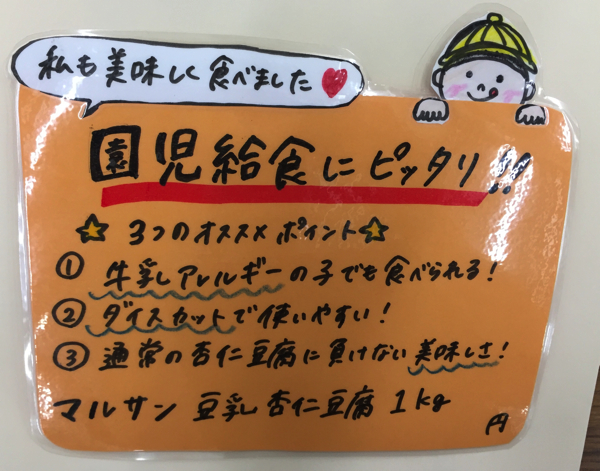 私も美味しく食べました♥
園児給食にピッタリ!!
☆3つのオススメポイント☆
① 牛乳アレルギーの子でも食べられる!
② ダイスカットで使いやすい!
③ 通常の杏仁豆腐に負けない美味しさ!
マルサン 豆乳杏仁豆腐 1kg
円